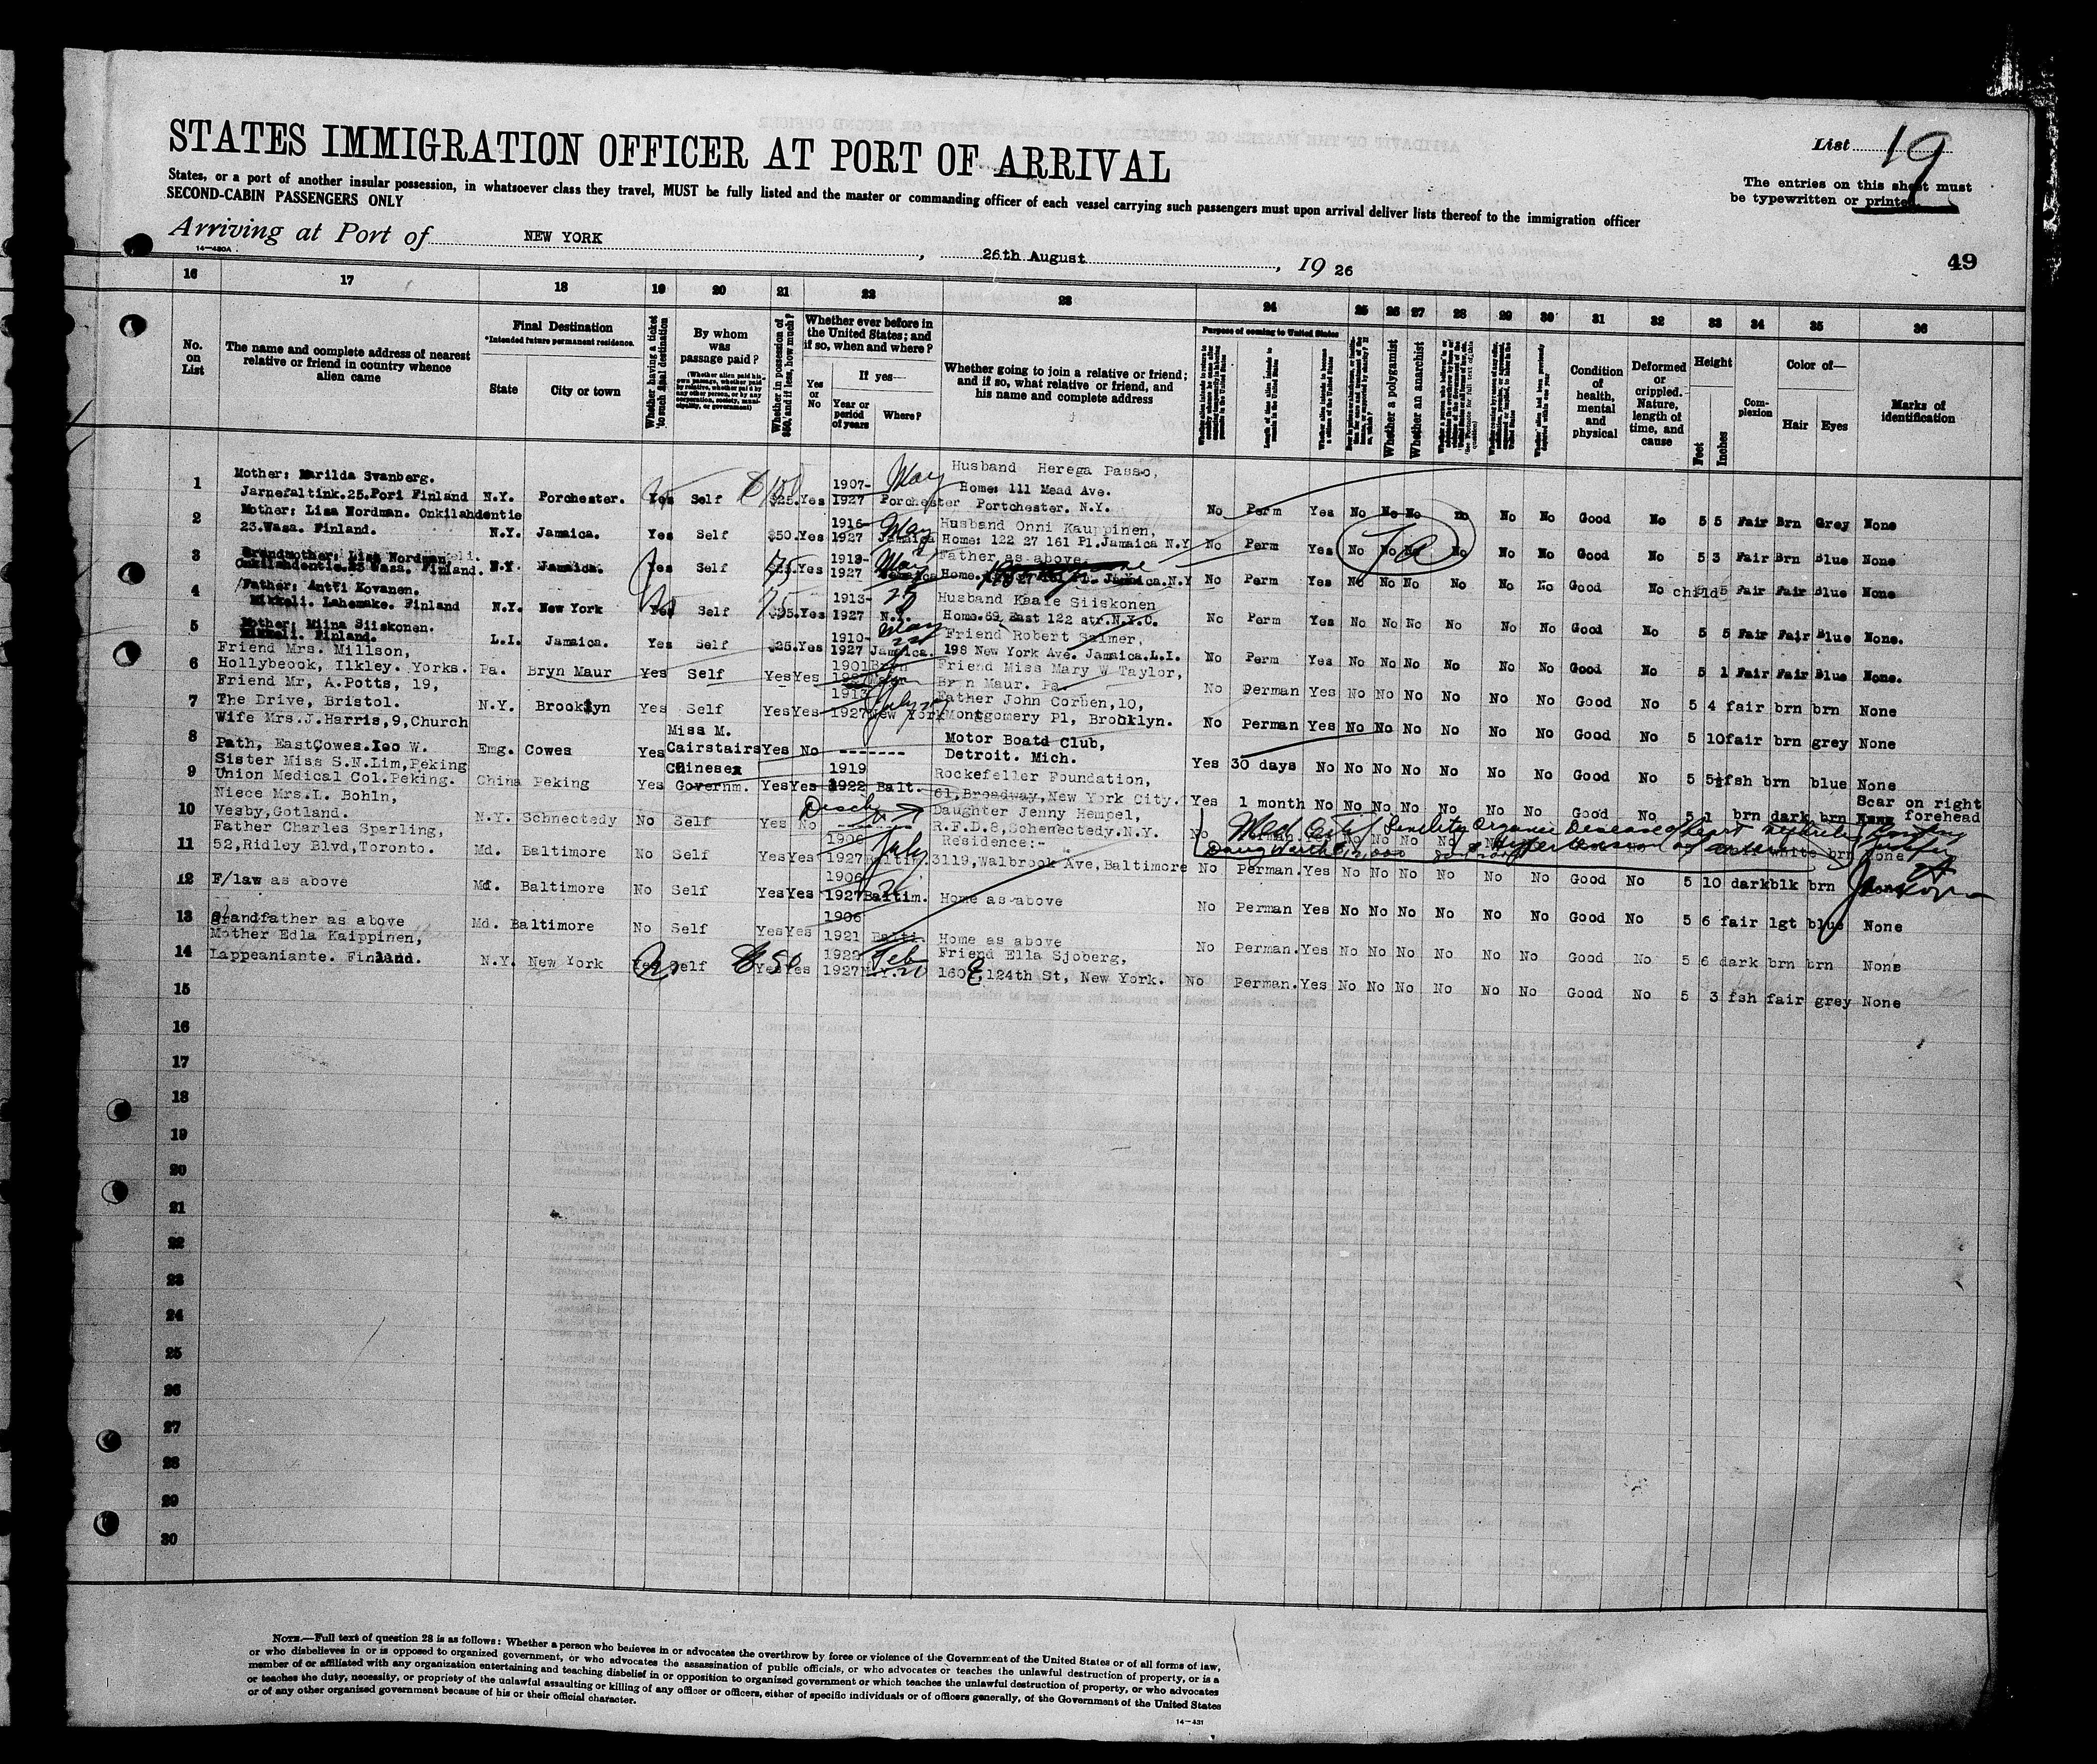 STATES IMMIGRATION OFFICER AT PORT OF ARRIVAL
States, or a port of another insular possession, in whatsoever class they travel, MUST be fully listed and the master or commanding officer of each vessel carrying such passengers must upon arrival deliver lists thereof to the immigration officer
SECOND-CABIN PASSENGERS ONLY
List 19
The entries on this sheet must
be typewritten or printed.
Arriving at Port of NEW YORK, 26th August, 19 26
14-430A
49
16 17 18 19 20 21 22 23 24 25 26 27 28 29 30 31 32 33 34 35 36
No. on List
The name and complete address of nearest relative or friend in country whence alien came
Final Destination
*Intended future permanent residence.
State
City or town
Whether having a ticket to such final destination
By whom was passage paid?
(Whether alien paid his own passage, whether paid by relative, whether paid by any other person, or by any corporation, society, municipality, or government)
Whether in possession of $50, and if less, how much?
Whether ever before in the United States; and if so, when and where?
Yes or No
If yes—
Year or period of years
Where?
Whether going to join a relative or friend; and if so, what relative or friend, and his name and complete address
Purpose of coming to United States
Length of time alien intends to remain in the United States
Whether alien intends to become a citizen of the United States
Whether a polygamist
Whether an anarchist
Condition of health, mental and physical
Deformed or crippled. Nature, length of time, and cause
Height
Feet
Inches
Complexion
Color of—
Hair
Eyes
Marks of identification
1 Mother: Marilda Svanberg.
Jarnefaltink.25.Pori Finland N.Y. Porchester. Yes Self $25. Yes 1907-1927 May Porchester Husband Herega Passo,
Home: 111 Mead Ave.
Portchester. N.Y. No Perm Yes No No No no No No Good No 5 5 Fair Brn Grey None
2 Mother: Lisa Nordman. Onkilahdentie
23.Wasa. Finland. N.Y. Jamaica. Yes Self $50. Yes 1916-1927 May Jamaica Husband Onni Kauppinen,
Home: 122 27 161 Pl.Jamaica N.Y No Perm Yes No No No No No No Good No 5 3 Fair Brn Blue None
3 Grandmother: Lisa Nordman.
Onkilahdentie.23 Wasa. Finland. N.Y. Jamaica. Yes Self 75 $25. Yes 1913-1927 May Jamaica Father as above
Home. 161 Pl. Jamaica.N.Y No Perm Yes No No No No No No Good No child 5 Fair Fair Blue None
4 Father: Antti Kovanen.
Mikkeli. Lahemake. Finland N.Y. New York Yes Self 75 $25. Yes 1913-1927 N.Y. Husband Kaale Siiskonen
Home.69 East 122 str.N.Y.C. No Perm Yes No No No No No No Good No 5 5 Fair Fair Blue None.
5 Mother: Miina Siiskonen.
Mikkeli. Finland. L.I. Jamaica. Yes Self $25. Yes 1910-1927 May Jamaica. Friend Robert Salmer,
198 New York Ave. Jamaica.L.I. No Perm Yes No No No No No No Good No 5 1 Fair Fair Blue None.
6 Friend Mrs. Millson,
Hollybeook, Ilkley. Yorks. Pa. Bryn Maur Yes Self Yes Yes 1901 1927 Bryn Maur Friend Miss Mary W Taylor,
Bryn Maur. Pa. No Perman Yes No No No No No No Good No 5 4 fair brn brn None
7 Friend Mr, A.Potts, 19,
The Drive, Bristol. N.Y. Brooklyn Yes Self Yes Yes 1913 1927 New York Father John Corben,10,
Montgomery Pl, Brooklyn. No Perman Yes No No No No No No Good No 5 10 fair brn grey None
8 Wife Mrs.J.Harris,9,Church
Path, East Cowes.Ioo W. Eng. Cowes Yes Miss M. Cairstairs Yes No -------- Motor Boatd Club,
Detroit. Mich. Yes 30 days No No No No No No No Good No 5 5½ fsh brn blue None
9 Sister Miss S.N.Lim,Peking
Union Medical Col.Peking. China Peking Yes Chinesex Governm. Yes Yes 1919 1922 Balt. Rockefeller Foundation,
61,Broadway,New York City. Yes 1 month No No No No No No No Good No 5 1 brn dark brn Scar on right forehead
10 Niece Mrs.L. Bohln,
Vesby,Gotland. N.Y. Schnectedy No Self Yes No -------- Daughter Jenny Hempel,
R.F.D.8,Schenectedy.N.Y. No Med Certif Senility Organic Disease of heart
white brn None
11 Father Charles Sparling,
52,Ridley Blvd,Toronto. Md. Baltimore No Self Yes Yes 1906 1927 July Baltim. Residence:-
3119,Walbrook Ave,Baltimore No Perman. Yes No No No No No No Good No 5 10 dark blk brn
12 F/law as above Md. Baltimore No Self Yes Yes 1906 1927 Baltim. Home as above No Perman Yes No No No No No No Good No 5 6 fair lgt blue None
13 Grandfather as above Md. Baltimore No Self Yes Yes 1906 1921 Balti. Home as above No Perman. Yes No No No No No No Good No 5 6 dark brn brn None
14 Mother Edla Kaippinen,
Lappeaniante. Finland. N.Y. New York Yes Self $50 Yes Yes 1922 1927 Feb N.Y. Friend Ella Sjoberg,
160 E 124th St, New York. No Perman. Yes No No No No No No Good No 5 3 fsh fair grey None
15
16
17
18
19
20
21
22
23
24
25
26
27
28
29
30
NOTE.—Full text of question 28 is as follows: Whether a person who believes in or advocates the overthrow by force or violence of the Government of the United States or of all forms of law,
or who disbelieves in or is opposed to organized government, or who advocates the assassination of public officials, or who advocates or teaches the unlawful destruction of property, or is a
member of or affiliated with any organization entertaining and teaching disbelief in or opposition to organized government or which teaches the unlawful destruction of property, or who advocates
or teaches the duty, necessity, or propriety of the unlawful assaulting or killing of any officer or officers, either of specific individuals or of officers generally, of the Government of the United States
or of any other organized government because of his or their official character.
14-431